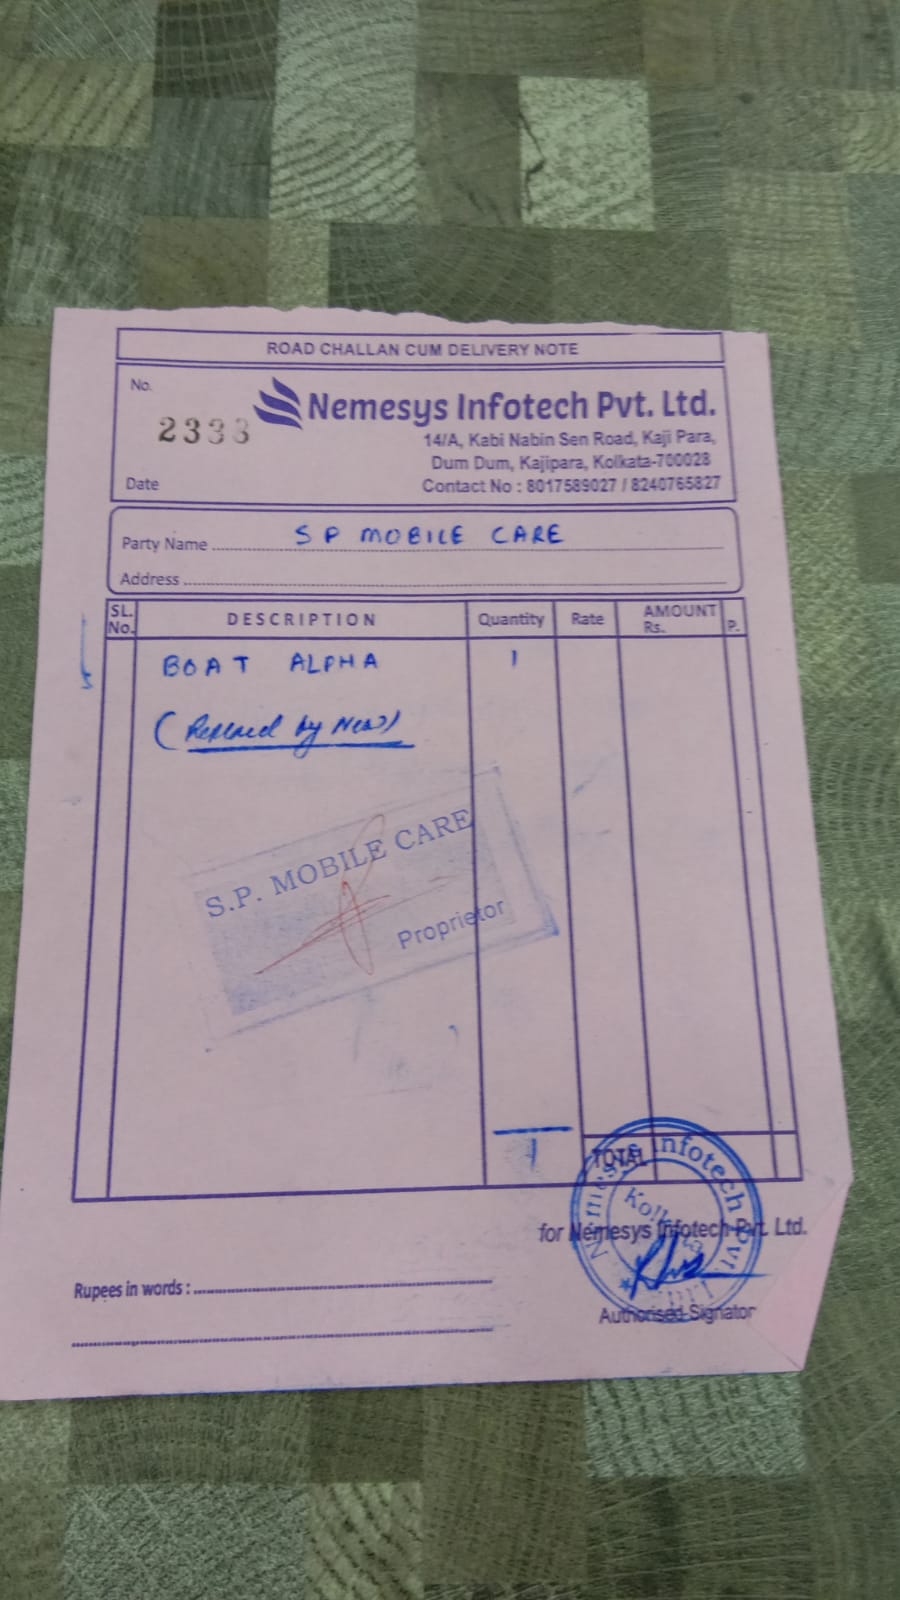 ROAD CHALLAN CUM DELIVERY NOTE
No.
2333
Nemesys Infotech Pvt. Ltd.
14/A, Kabi Nabin Sen Road, Kaji Para,
Dum Dum, Kajipara, Kolkata-700028
Date
Contact No : 8017589027 / 8240765827
Party Name S P MOBILE CARE
Address
SL. No. DESCRIPTION Quantity Rate AMOUNT Rs. P.
BOAT ALPHA 1
by New)
S.P. MOBILE CARE
Proprietor
1
TOTAL
Nemesys Infotech Pvt. Ltd.
Kolkata
for Nemesys Infotech Pvt. Ltd.
Rupees in words :
Authorised Signator